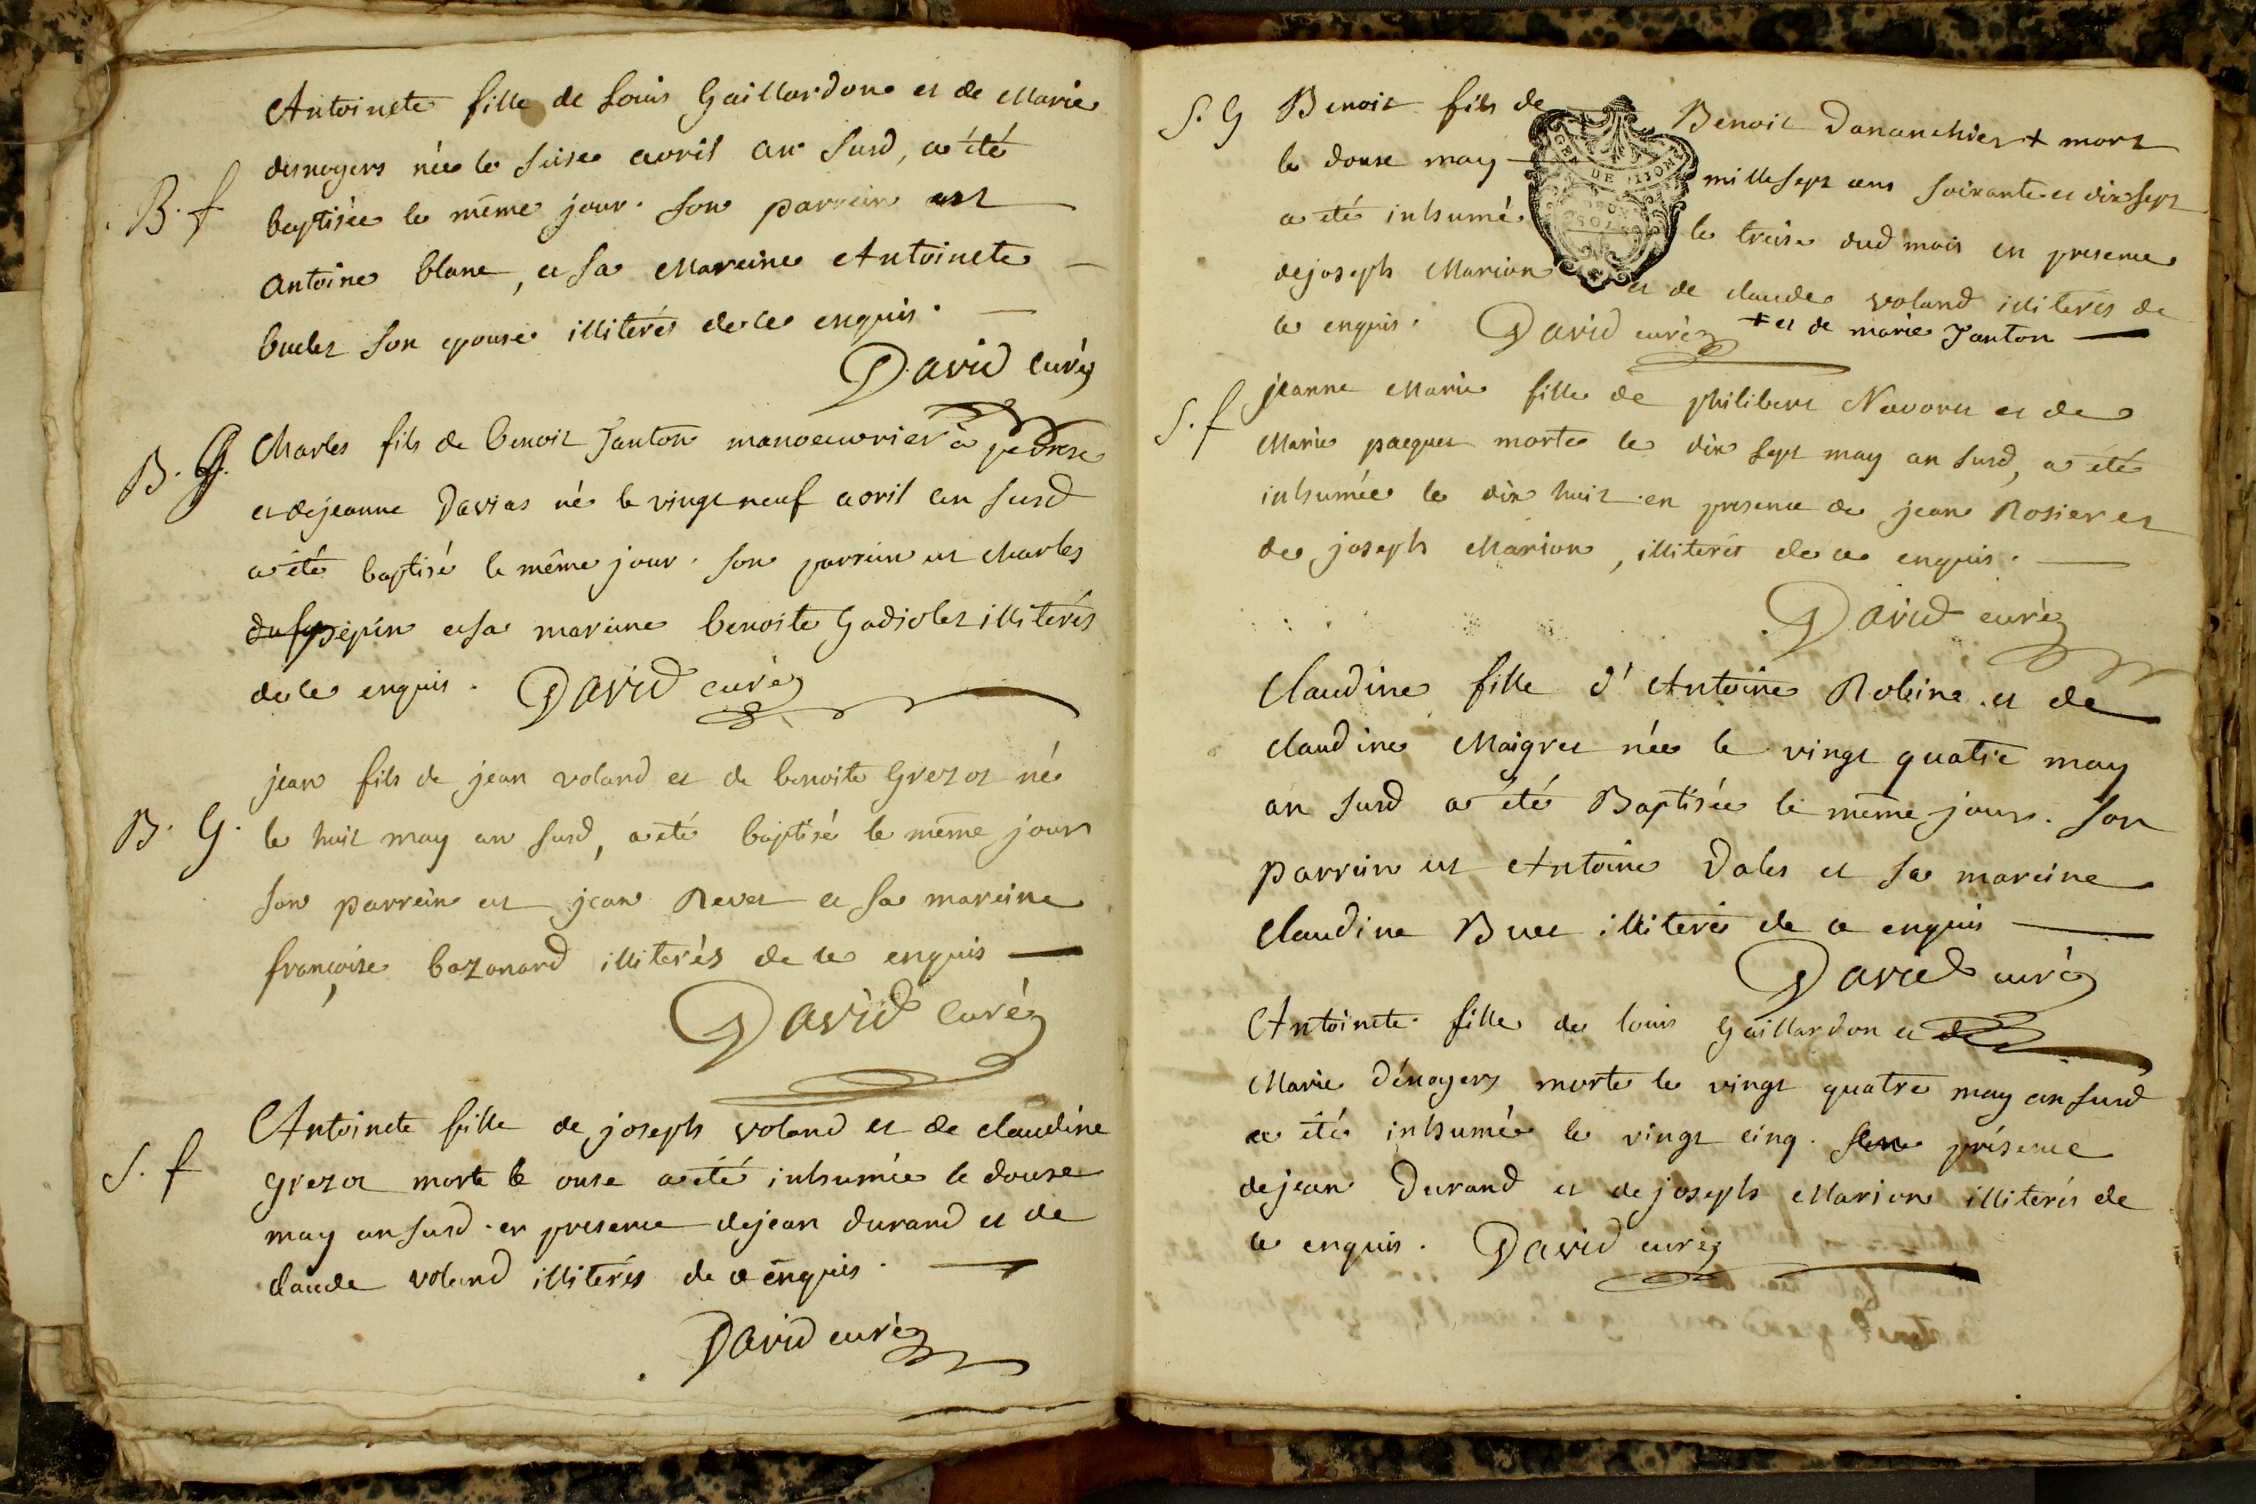 Antoinete fille de Louis Gaillardon et de Marie
desnoyers née le seise avril an susd, a été
B. f
baptisée le même jour. Son parrein est
Antoine blanc, et sa Mareine Antoinete
buclet son epouse illiterés de ce enquis.
David curé
B. G. Charles fils de benoit Janton manoeuvrier à
et de jeanne Davias né le vingt neuf avril an susd
a été baptisé le même jour. son parrein est Charles
pépin et sa mareine benoite Gadiolet illiterés
de ce enquis. David curé
jean fils de jean voland et de benoite Grezot né
B. G. le huit may an susd, a été baptisé le même jour
son parrein est jean Revet et sa mareine
françoise bazonard illiterés de ce enquis
David curé
Antoinete fille de joseph voland et de claudine
S. f grezot morte le onse a été inhumée le douse
may an susd. en presence de jean durand et de
claude voland illiterés de ce enquis.
David curé
S. G Benoit fils de Benoit Dananchier + mort
le douse may mille sept cens soixante et dix sept
a été inhumé le treise dud mois en presence
de joseph Marion et de claude voland illiterés de
ce enquis. David curé + et de marie Janton
GEN DE DIJON
DEUX
SOLS
S. f jeanne Marie fille de philibert Navoret et de
Marie pacquet morte le dix sept may an susd, a été
inhumée le dix huit en presence de jean Rosier et
de joseph Marion, illiterés de ce enquis.
David curé
Claudine fille d'Antoine Robine et de
claudine Maigret née le vingt quatre may
an susd a été Baptisée le même jour. son
parrein est Antoine Dalés et sa mareine
Claudine Buet illiterés de ce enquis
David curé
Antoinete fille de louis Gaillardon et de
Marie Dénoyers morte le vingt quatre may an susd
a été inhumée le vingt cinq. en présence
de jean Durand et de joseph Marion illiterés de
ce enquis. David curé